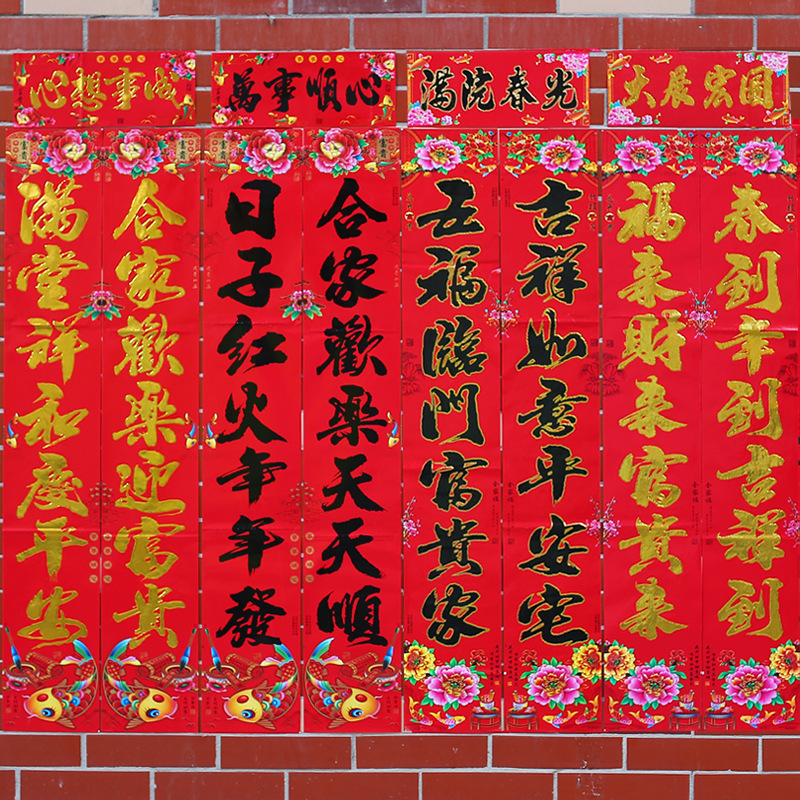 心想事成
萬事順心
滿院春光
大展宏圖
富貴
富貴
富貴
富貴
春到幸到吉祥到
福来財来富貴来
吉祥如意平安宅
五福臨門富貴家
合家歡樂天天順
日子红火年年發
合家歡樂迎富貴
滿堂祥和慶平安